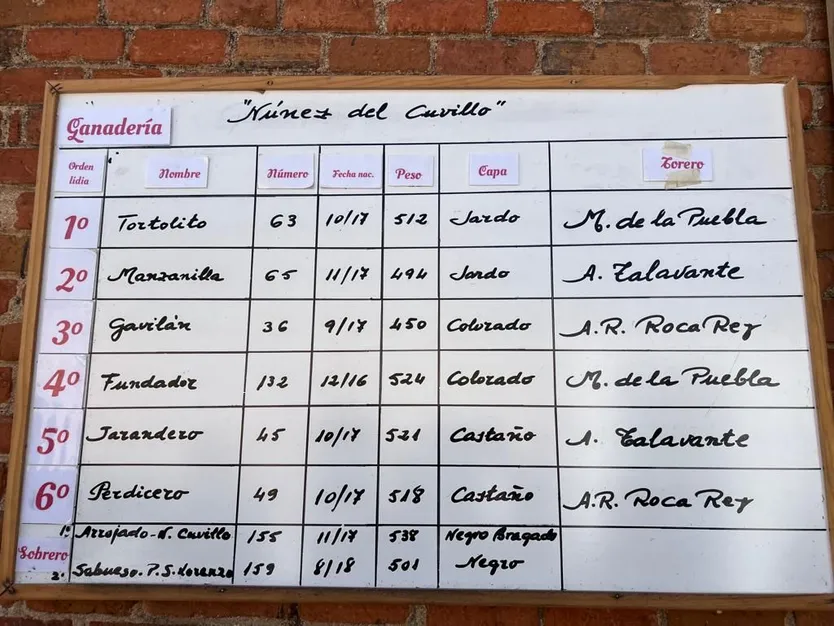 "Núnez del Cuvillo"
Ganadería
Orden lidia Nombre Número Fecha nac. Peso Capa Torero
1º Tortolito 63 10/17 512 Jardo M. de la Puebla
2º Manzanilla 65 11/17 494 Jardo A. Talavante
3º Gavilán 36 9/17 450 Colorado A.R. Roca Rey
4º Fundador 132 12/16 524 Colorado M. de la Puebla
5º Jarandero 45 10/17 521 Castaño A. Talavante
6º Perdicero 49 10/17 518 Castaño A.R. Roca Rey
Sobrero 1º Arrojado-N. Cuvillo 155 11/17 538 Negro Bragado
2º Sabueso. P.S. Lorenzo 159 8/18 501 Negro